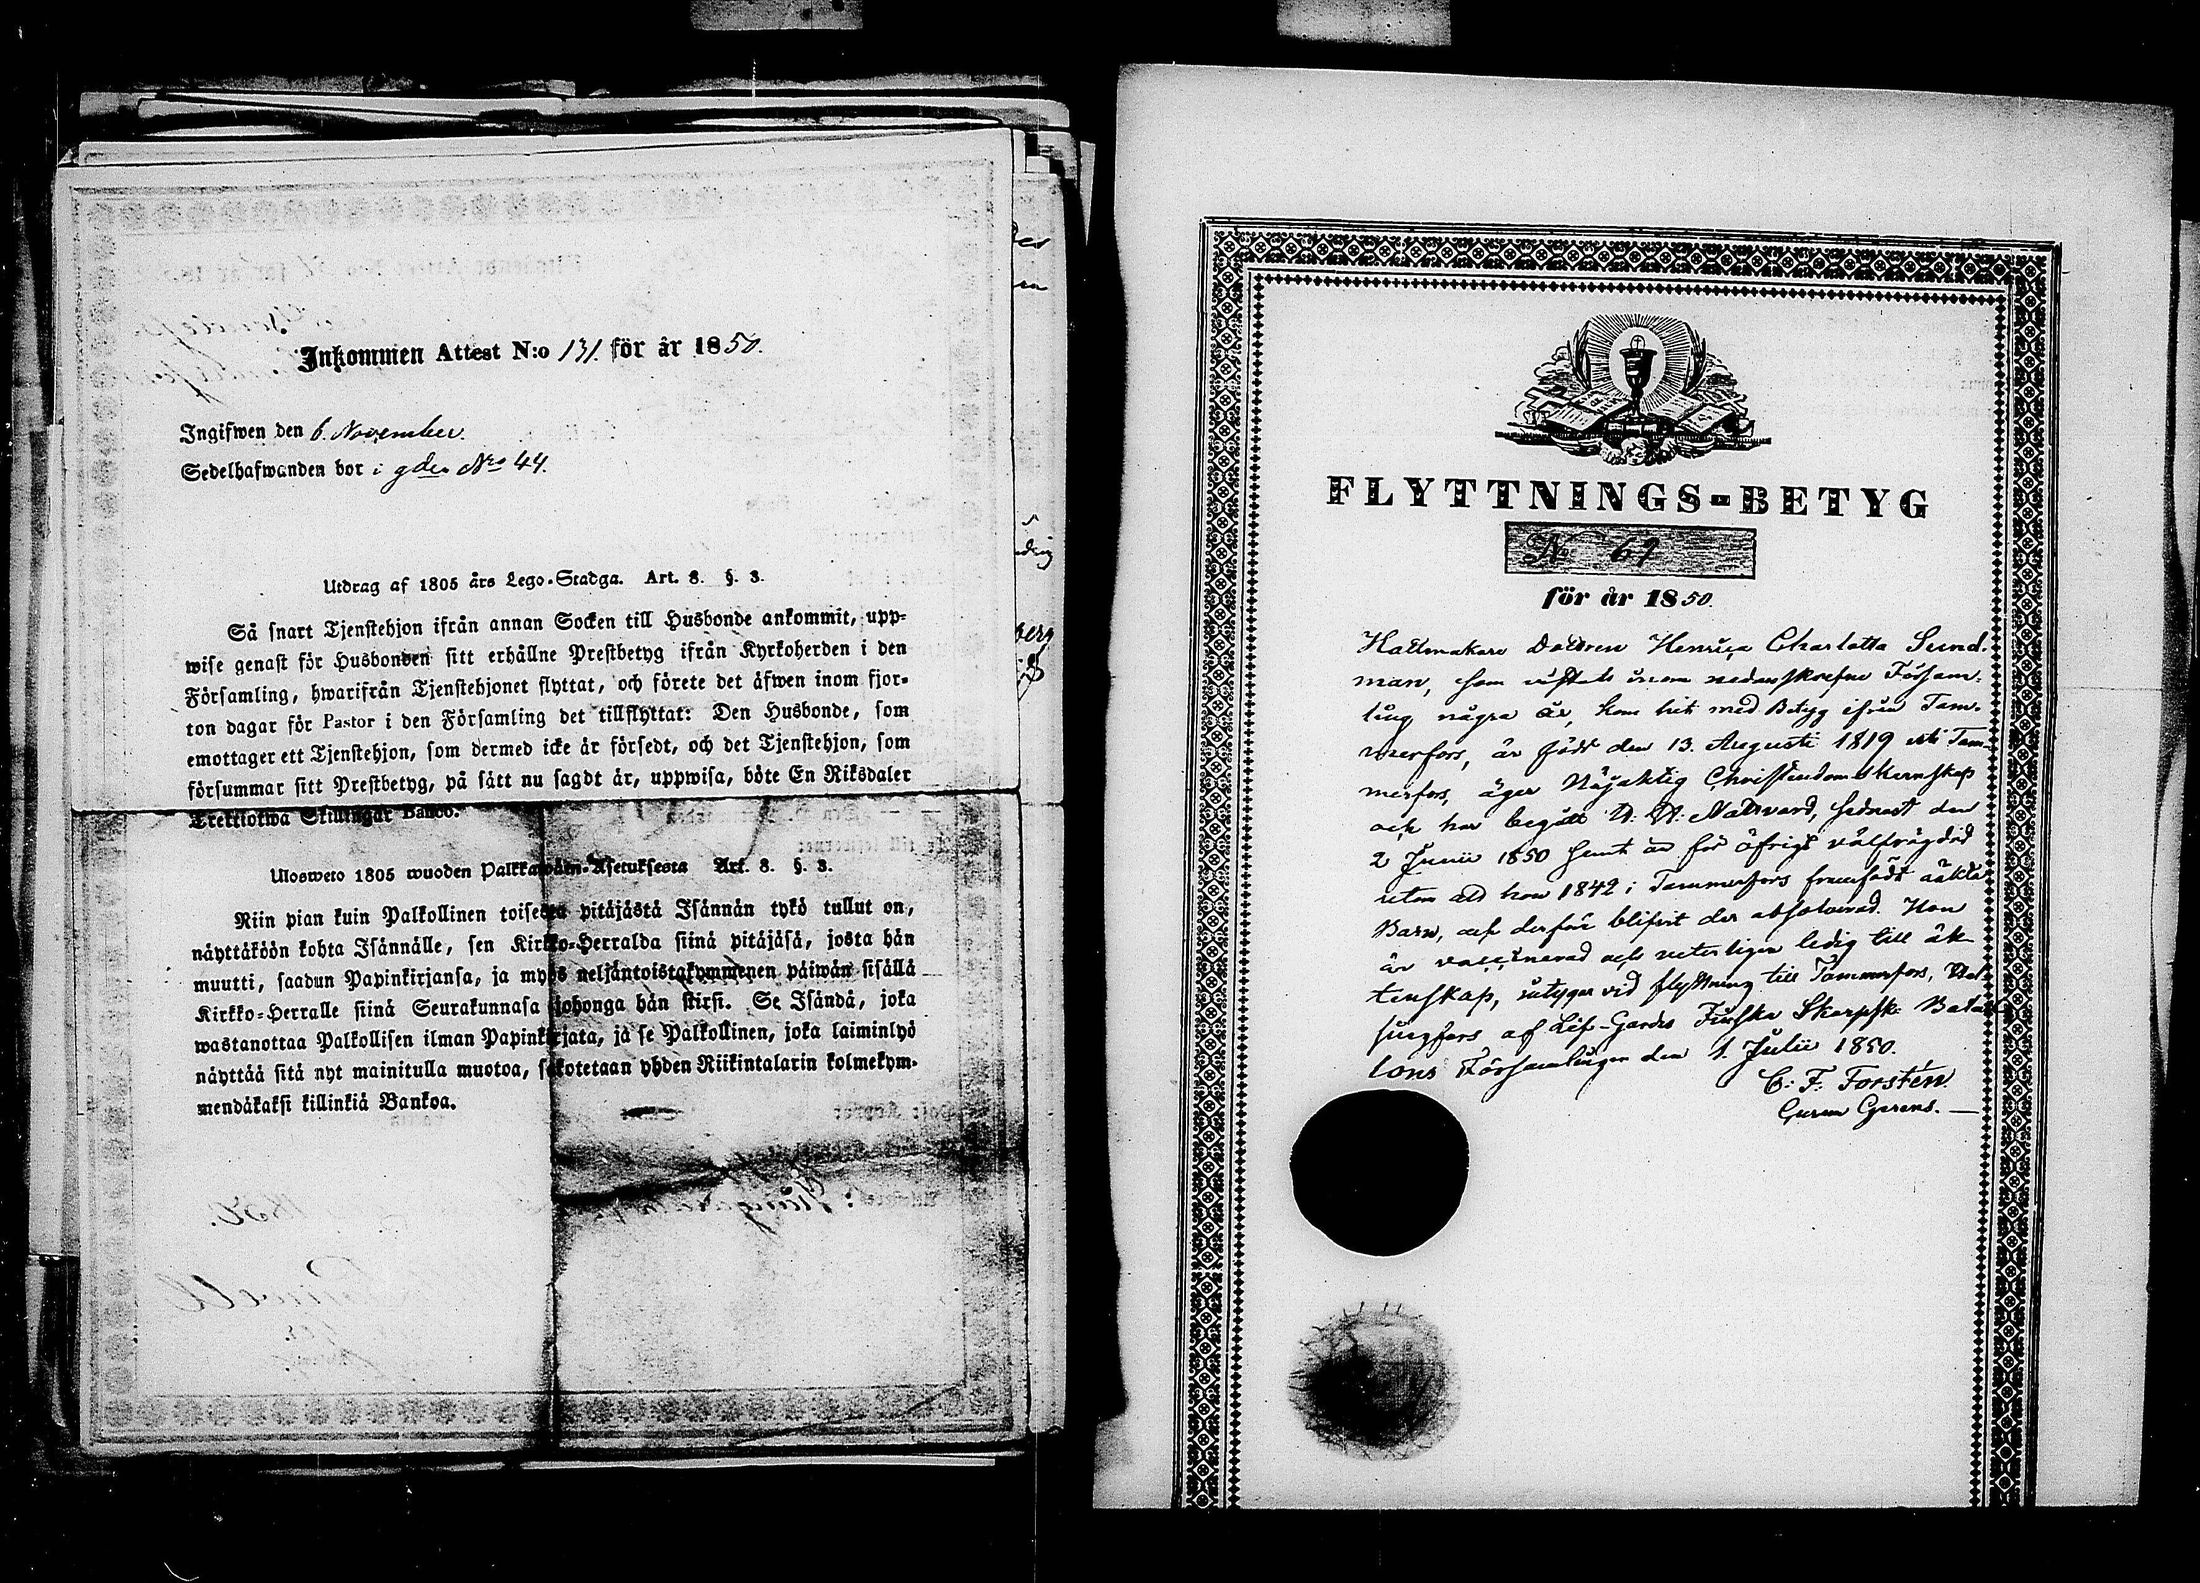 Inkommen Attest N:o 131. för år 1850.
Ingifwen den 6. November.
Sedelhafwanden bor i gden Nro 44.
Utdrag af 1805 års Lego-Stadga. Art. 8. §. 3.
Så snart Tjenstehjon ifrån annan Socken till Husbonde ankommit, upp-
wise genast för Husbonden sitt erhållne Prestbetyg ifrån Kyrkoherden i den
Församling, hwarifrån Tjenstehjonet flyttat, och förete det äfwen inom fjor-
ton dagar för Pastor i den Församling det tillflyttat: Den Husbonde, som
emottager ett Tjenstehjon, som dermed icke är försedt, och det Tjenstehjon, som
försummar sitt Prestbetyg, på sätt nu sagdt är, uppwisa, böte En Riksdaler
Trettiotwå Skillingar Banco.
Ulosweto 1805 wuoden Palkkawäen-Asetuksesta Art. 8. §. 3.
Niin pian kuin Palkollinen toisesta pitäjästä Isännän tykö tullut on,
näyttäköön kohta Isännälle, sen Kirkko-Herralda siinä pitäjäsä, josta hän
muutti, saadun Papinkirjansa, ja myös neljäntoistakymmenen päiwän sisällä
Kirkko-Herralle siinä Seurakunnasa johonga hän siirsi. Se Isändä, joka
wastanottaa Palkollisen ilman Papinkirjata, ja se Palkollinen, joka laiminlyö
näyttää sitä nyt mainitulla muotoa, sakotetaan yhden Riikintalarin kolmekym-
mendäkaksi killinkiä Bankoa.
FLYTTNINGS-BETYG
No 67
för år 1850.
Hattmakare Dottren Henrica Charlotta Sund-
man, som vistats inom nedanskrefne Försam-
ling några år, kom hit med Betyg ifrån Tam-
merfors, är född den 13. Augusti 1819 uti Tam-
merfors, äger Nöjaktig Christendomskunskap
och har begått H. H. Nattvard, sednast den
2 Junii 1850 samt är för öfrigt välfrägdad
utom att hon 1842 i Tammerfors framfödt oäkta
Barn, och derför blifvit der absolverad. Hon
är vaccinerad och veterligen ledig till äk-
tenskap, intygar vid flyttning till Tammerfors,
singfors af Lif-Gardes Finska Skarpsk. Batal-
lons Församlingen den 1. Julii 1850.
C. F. Forstén
Curam Gerens.